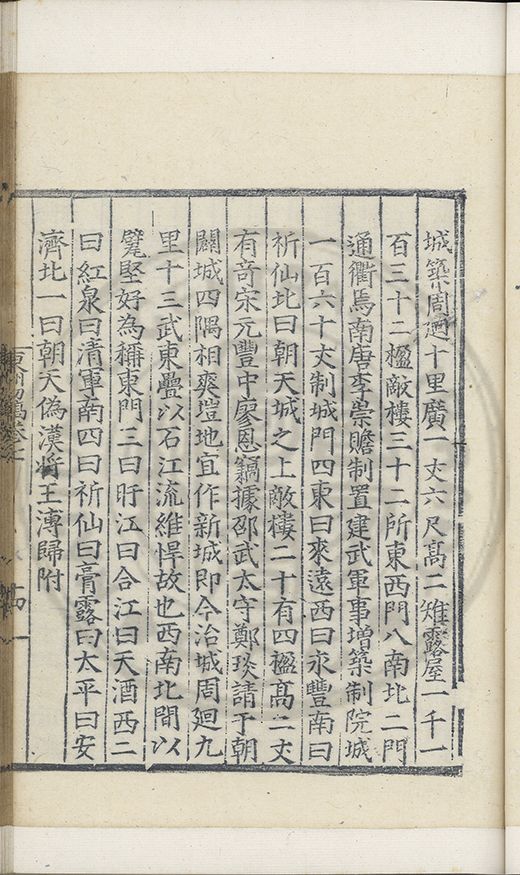 城築周廻十里廣一丈六尺髙二雉露屋一千一
百三十二楹敵樓三十二所東西門八南北二門
通衢焉南唐李崇贍制置建武軍事增築制院城
一百六十丈制城門四東曰來逺西曰永豐南曰
祈仙北曰朝天城之上敵樓二十有四楹髙二丈
有竒宋元豐中廖恩竊據邵武太守鄭琰請于朝
闢城四隅相爽塏地宜作新城即今治城周廻九
里十三武東疊以石江流維悍故也西南北間以
甓堅好為稱東門三曰盱江曰合江曰天酒西二
曰紅泉曰清軍南四曰祈仙曰膏露曰太平曰安
濟北一曰朝天偽漢将王溥歸附